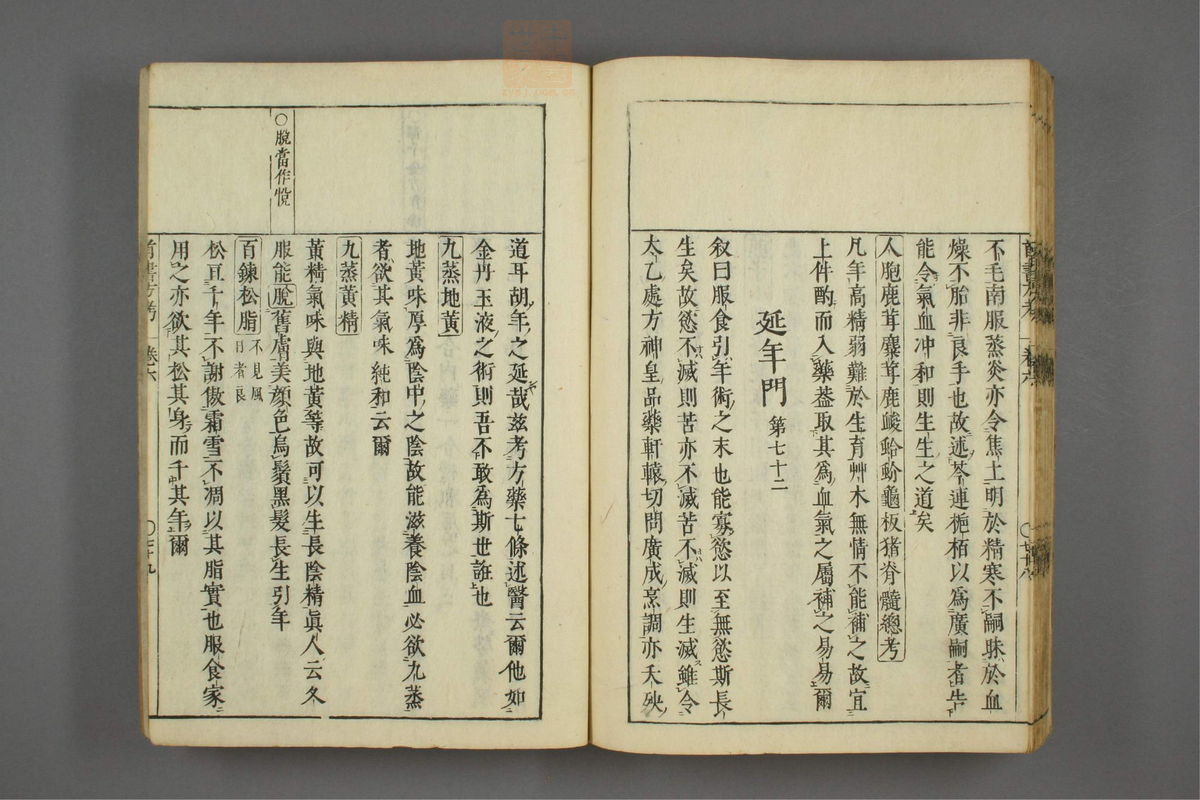 不毛南服蒸炎亦令焦土明於精寒不嗣昧於血
燥不胎非良手也故述芩連梔栢以為廣嗣者告
能令氣血冲和則生生之道矣
人胞鹿茸麋茸鹿峻蛤蚧龜板猪脊髓總考
凡年高精弱難於生育艸木無情不能補之故宜
上件酌而入藥葢取其為血氣之屬補之易易爾
延年門 第七十二
叙曰服食引年術之末也能寡慾以至無慾斯長
生矣故慾不滅則苦亦不滅苦不滅則生滅雖令
太乙處方神皇品藥軒轅切問廣成烹調亦夭殃
道耳胡年之延哉茲考方藥七條述醫云爾他如
金丹玉液之術則吾不敢為斯世誑也
九蒸地黃
地黃味厚為陰中之陰故能滋養陰血必欲九蒸
者欲其氣味純和云爾
九蒸黃精
黃精氣味與地黃等故可以生長陰精真人云久
服能脫舊膚美顏色烏鬚黑髮長生引年
〇脫當作悅
百鍊松脂 不見風
日者良
松亙千年不謝傲霜雪不凋以其脂實也服食家
用之亦欲其松其身而千其年爾